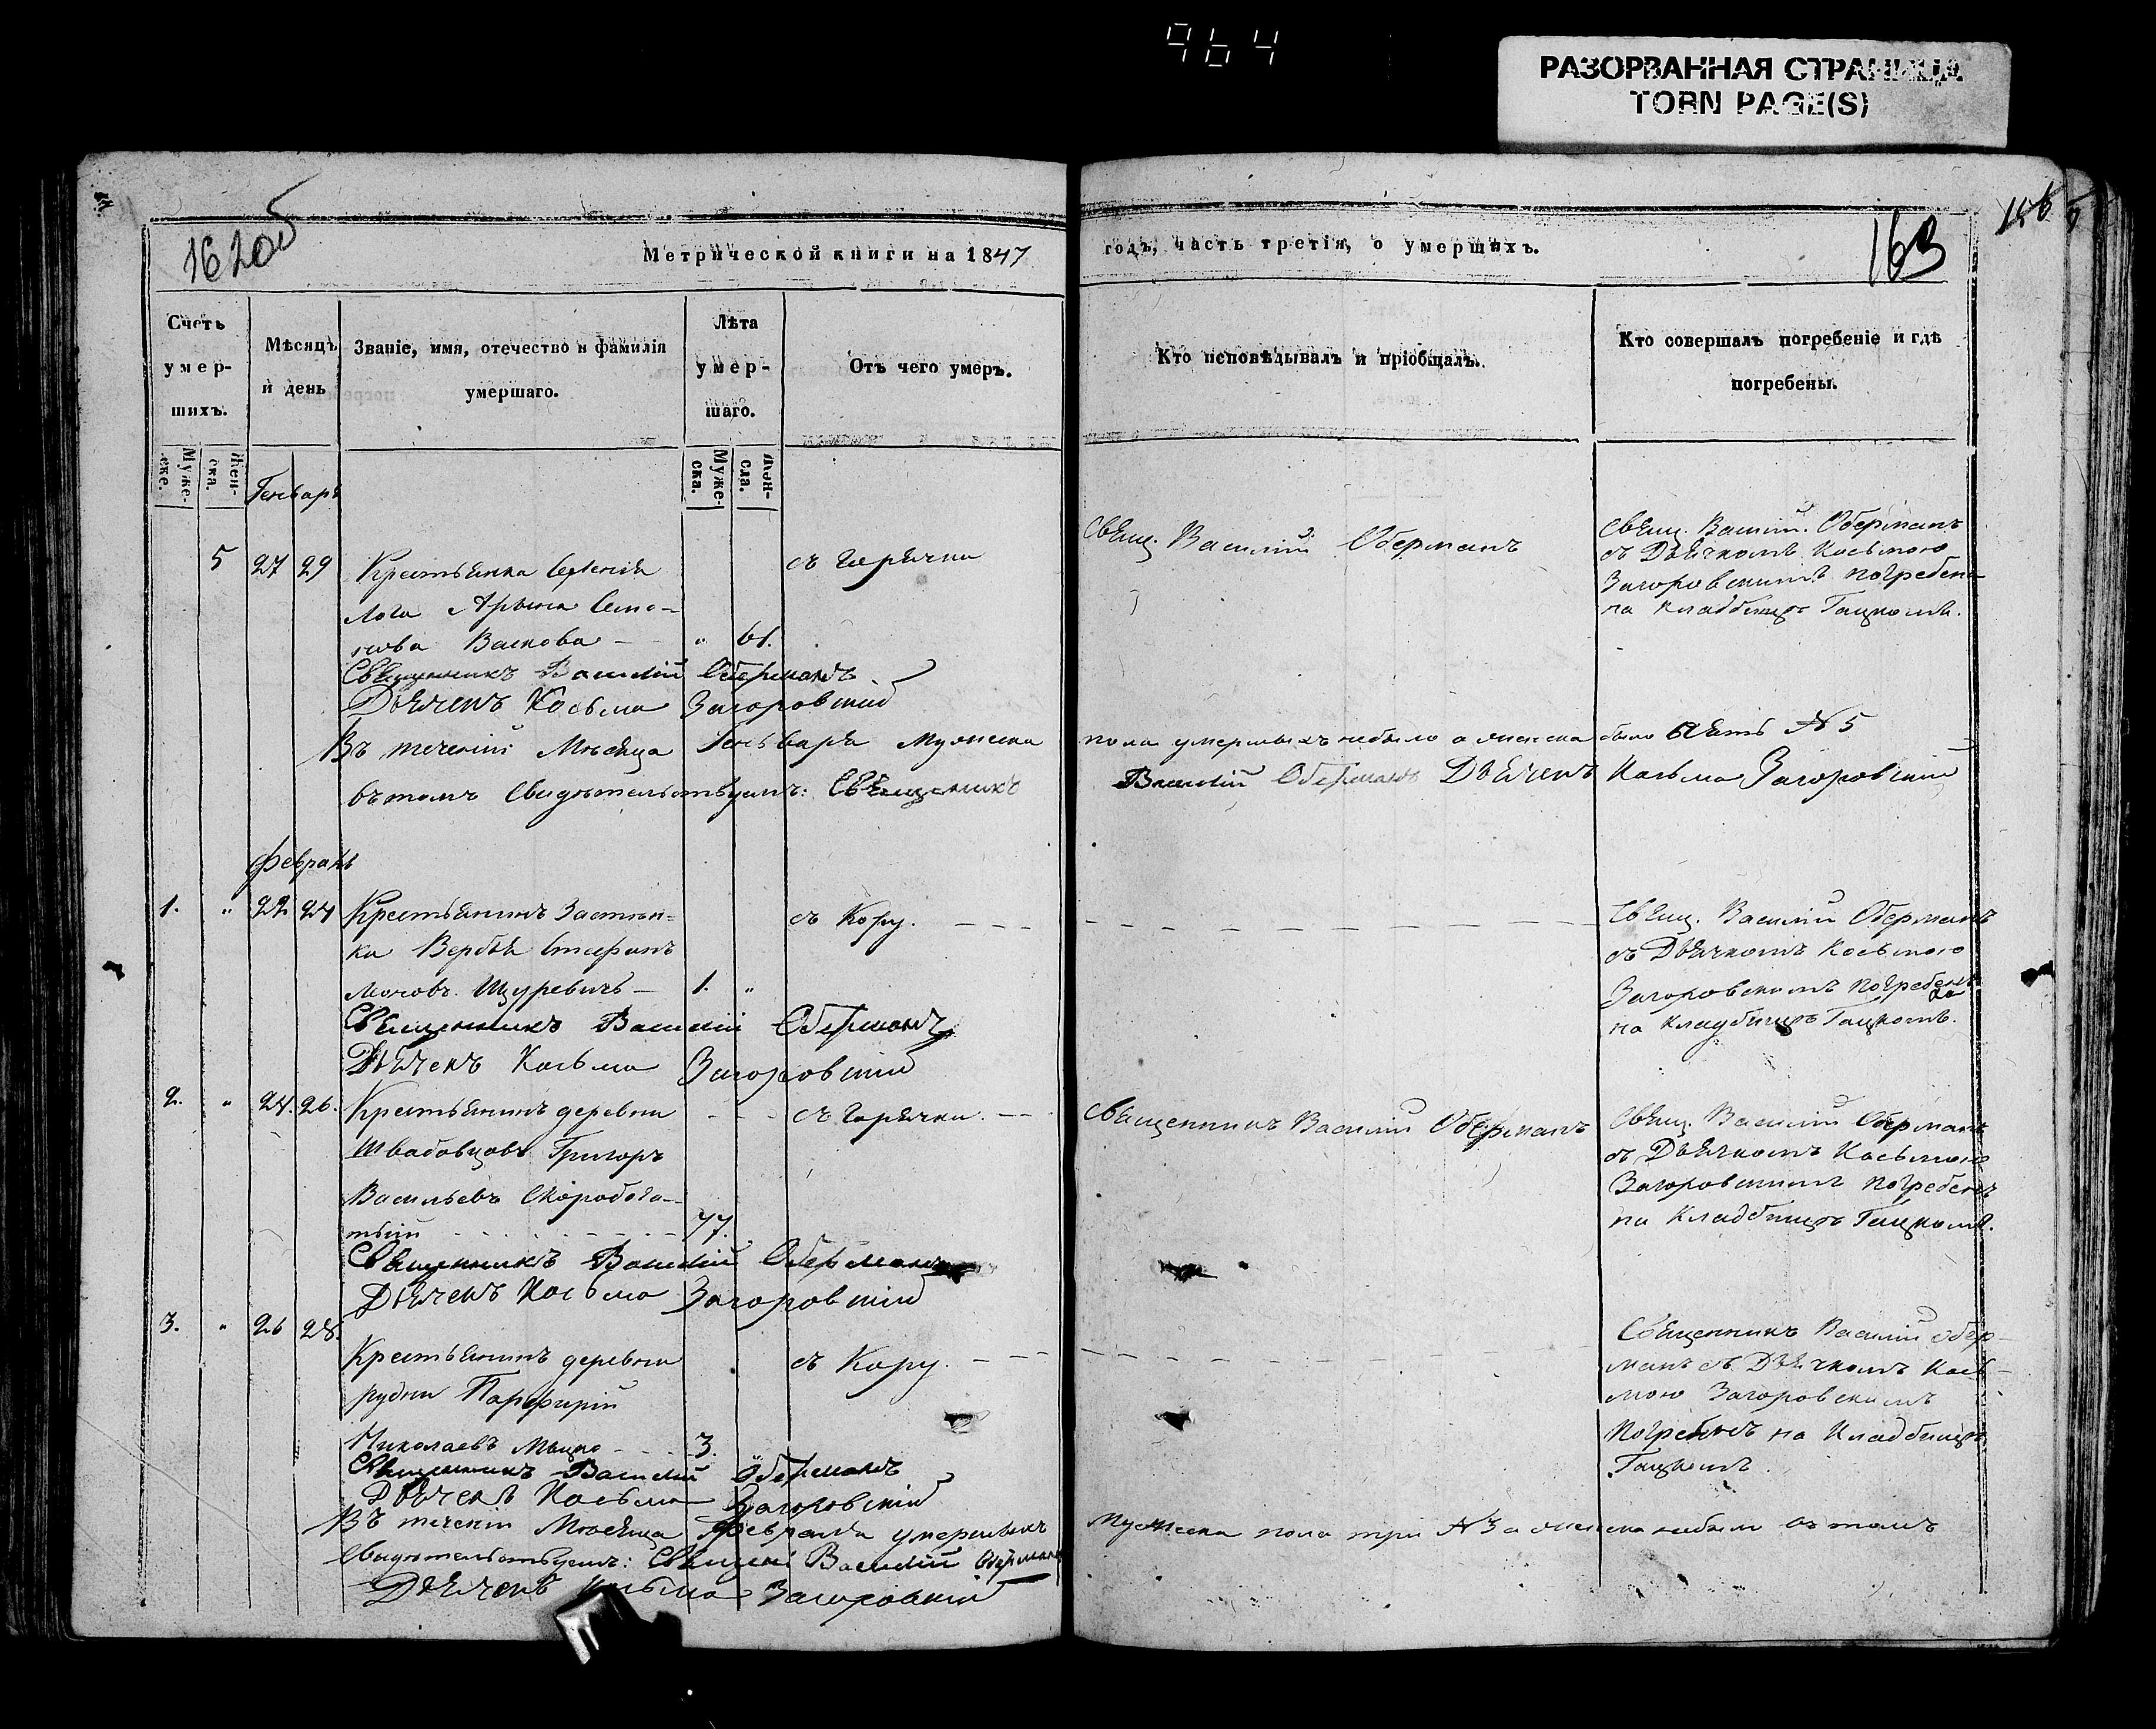 964
РАЗОРВАННАЯ СТРАНИЦА
TORN PAGE(S)
162об
Метрической книги на 1847
годъ, часть третія, о умершихъ.
163
Счетъ умер-шихъ.
Мѣсяцъ и день
Званіе, имя, отечество и фамилія умершаго.
Лѣта умер-шаго.
Отъ чего умеръ.
Кто исповѣдывалъ и пріобщалъ.
Кто совершалъ погребеніе и гдѣ погребены.
Муже-ске.
Жен-ска.
Муже-ска.
Генварь
5 27 29 Крестьянка
Арина Семе-
нова " 61.
съ Горячки
Свящ. Василій Оберманъ
Свящ. Василій Оберманъ
съ Дьячкомъ Косьмою
Загоровскимъ погребена
на кладбищѣ Гацкомъ.
Священникъ Василій Оберманъ
Дьячекъ Косьма Загоровскій
Въ теченіи Мѣсяца Генваря Мужеска
пола умершихъ небыло а женска было пять № 5
въ томъ Свидѣтельствуемъ: Священникъ
Василій Оберманъ Дьячекъ Косьма Загоровскій
Февраль
1. " 22 24 Крестьянинъ Застѣн-
ка Вербы Стефанъ
Щуревичъ — 1. "
съ Кору.
Свящ. Василій Оберманъ
съ Дьячкомъ Косьмою
Загоровскимъ погребенъ
на кладбищѣ Гацкомъ.
Священникъ Василій Оберманъ
Дьячекъ Косьма Загоровскій
2. " 24. 26. Крестьянинъ деревни
Швабовцовъ Григоръ
Васильевъ Скоробога-
тый 77.
съ Горячки.
Священникъ Василій Оберманъ
Свящ. Василій Оберманъ
съ Дьячкомъ Косьмою
Загоровскимъ погребенъ
на Кладбищѣ Гацкомъ.
Священникъ Василій Оберманъ
Дьячекъ Косьма Загоровскій
3. " 26 28. Крестьянинъ деревни
рудни Парфирій
Николаевъ 3.
съ Кору.
Священникъ Василій Обер-
манъ съ Дьячкомъ Кось-
мою Загоровскимъ
Погребенъ на Кладбищѣ
Гацкомъ.
Священникъ Василій Оберманъ
Дьячекъ Косьма Загоровскій
Въ теченіи Мѣсяца Февраля умершихъ
Мужеска пола три № 3 а женска небыло въ томъ
Свидѣтельствуемъ: Василій Оберманъ
Дьячекъ Косьма Загоровскій